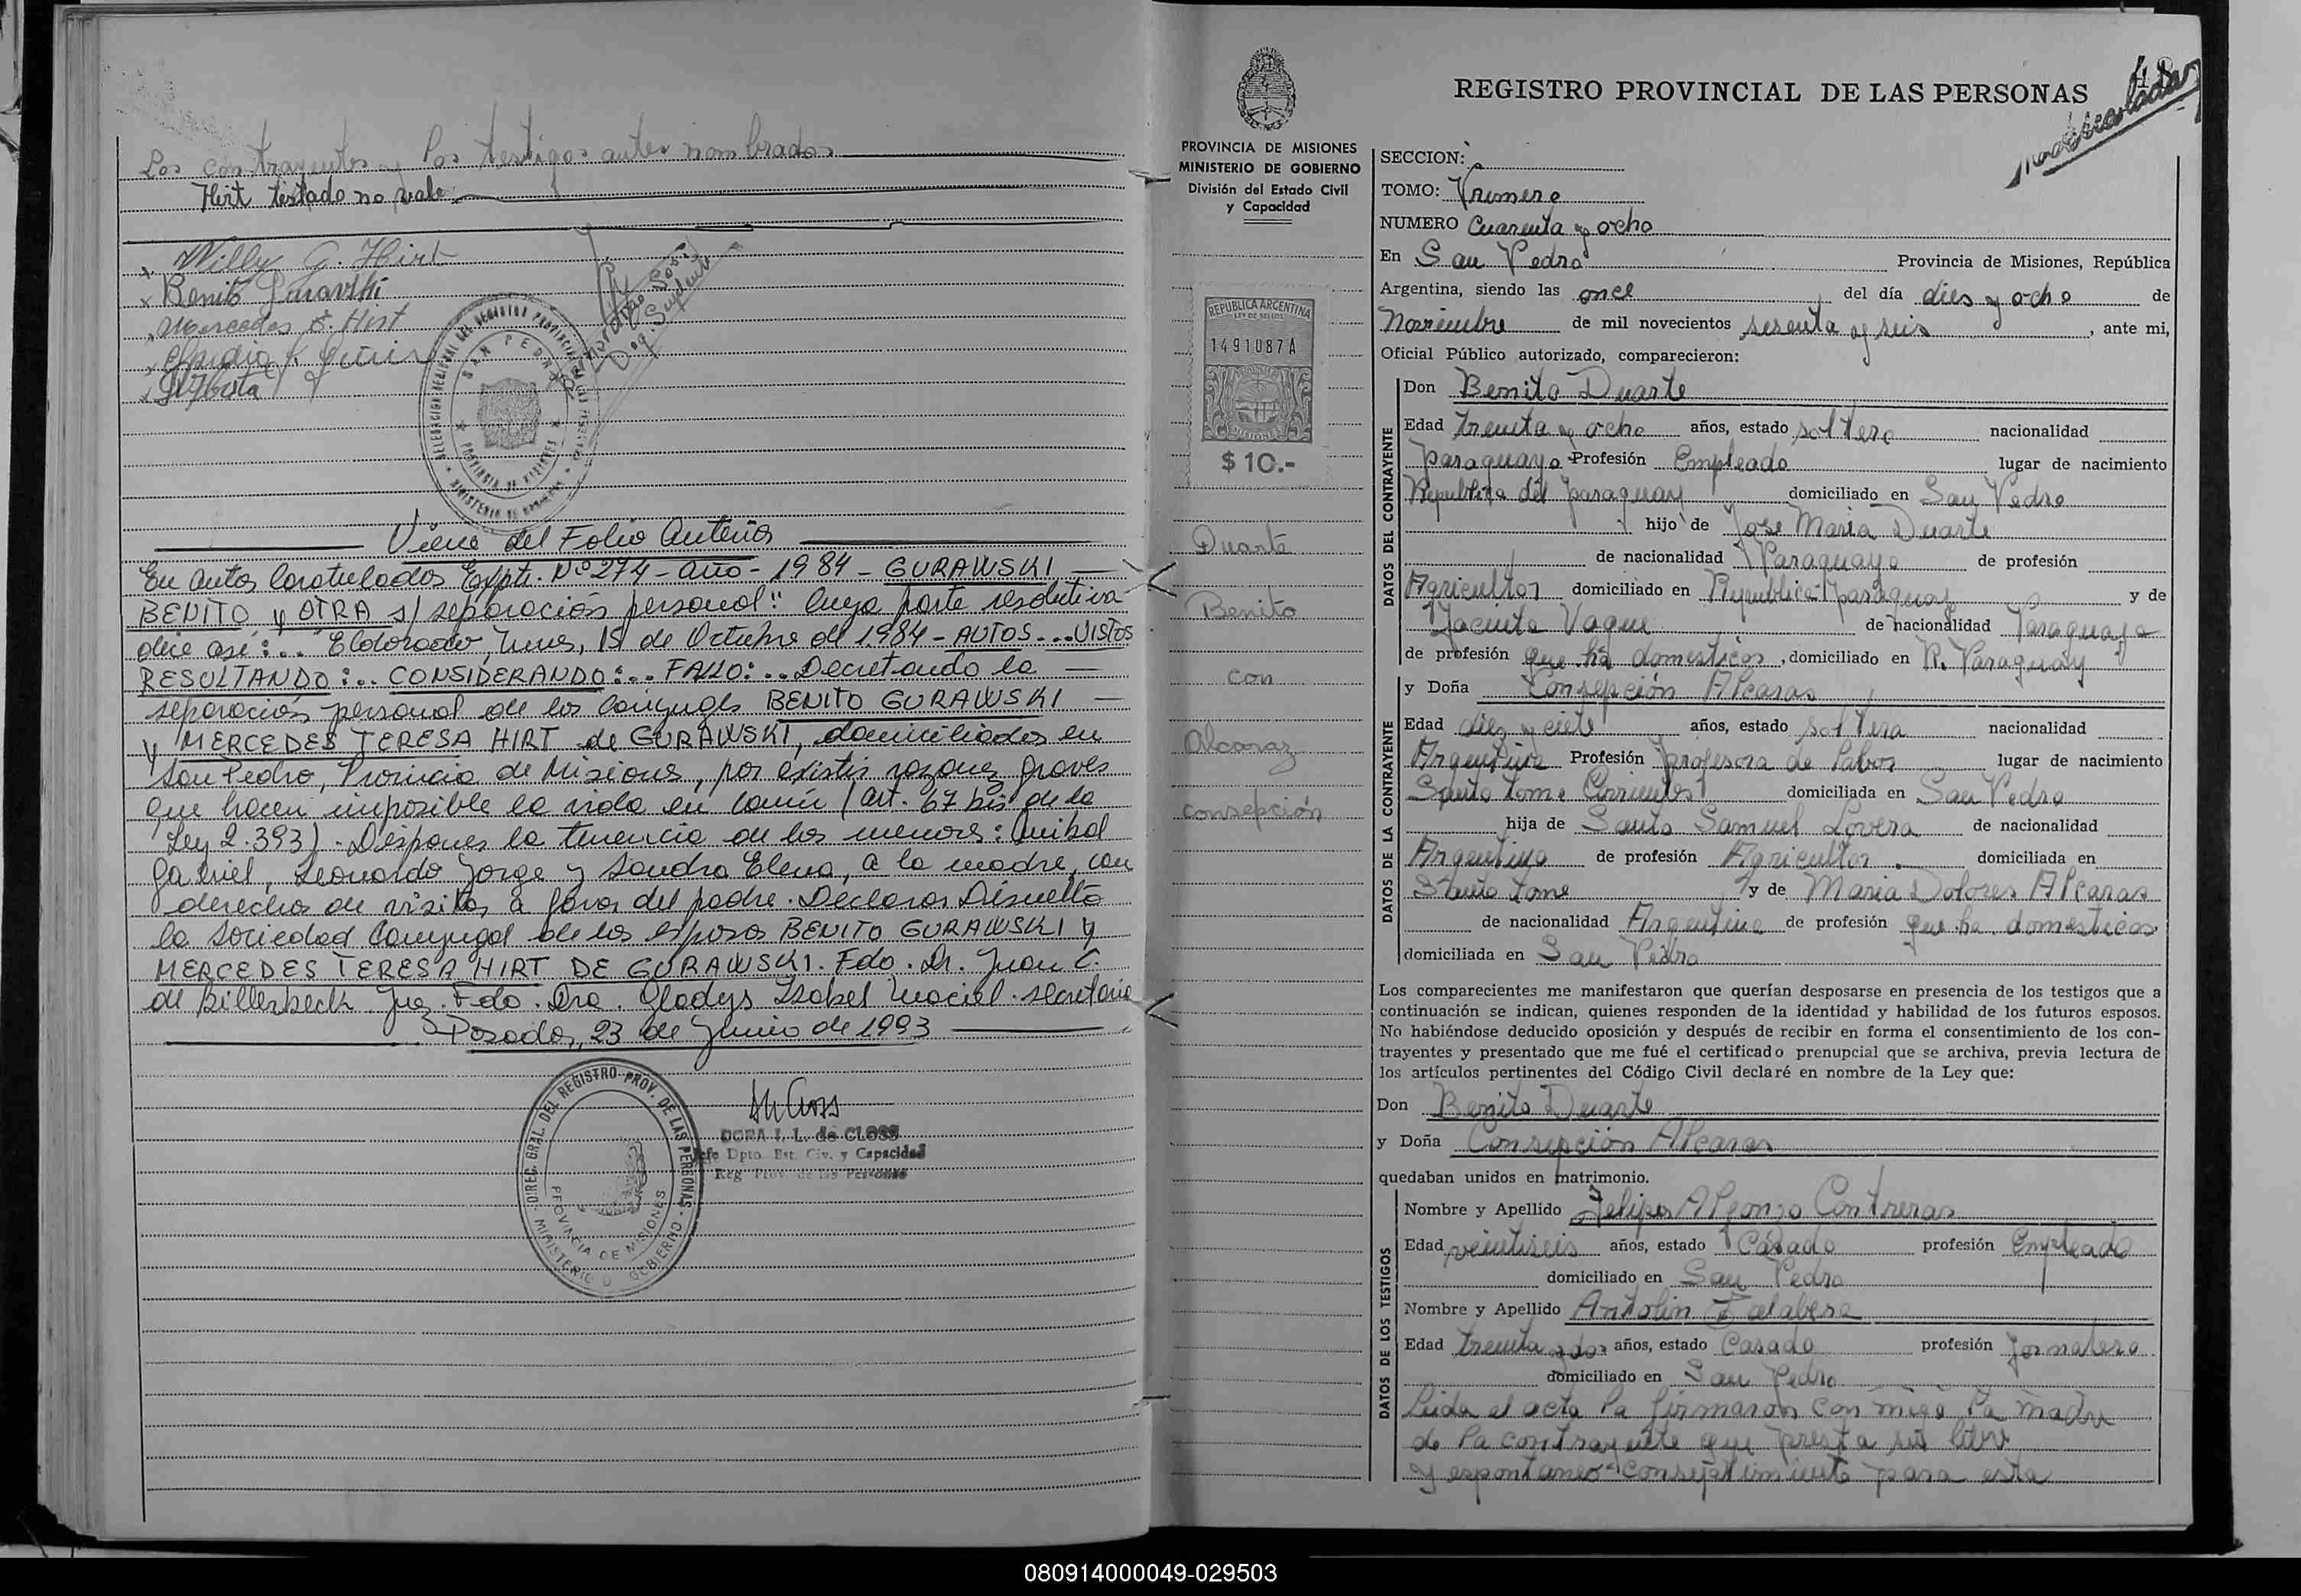 Los contrayentes y los testigos antes nombrados
Hirt testado no vale
Willy G. Hirt
Benito Guravski
Mercedes T. Hirt
DELEGACION REGIONAL DEL REGISTRO PROVINCIAL DE LAS PERSONAS
SAN PEDRO
PROVINCIA DE MISIONES
Viene del Folio Anterior
En autos Caratulados Expte. Nº 274 - año - 1984 - GURAWSKI
BENITO y OTRA s/ separación personal" cuya parte resolutiva
dice así:.. "Eldorado, Mnes, 15 de Octubre de 1984 - AUTOS...VISTOS
RESULTANDO:.. CONSIDERANDO:.. FALLO:.. Decretando la
separación personal de los cónyuges BENITO GURAWSKI
y MERCEDES TERESA HIRT de GURAWSKI, domiciliados en
San Pedro, Provincia de Misiones, por existir razones graves
que hacen imposible la vida en común (art. 67 bis de la
Ley 2.393). Dispones la tenencia de los menores: Anibal
Gabriel, Leonardo Jorge y Sandra Elena, a la madre, con
derecho de visitas a favor del padre. Declarar Disuelta
la sociedad Conyugal de los esposos BENITO GURAWSKI y
MERCEDES TERESA HIRT DE GURAWSKI. Fdo. Dr. Juan C.
de Billerbeck Juez. Fdo. Dra. Gladys Isabel Maciel. secretaria
Posadas, 23 de Junio de 1993
DIREC. GRAL. DEL REGISTRO PROV. DE LAS PERSONAS
MINISTERIO D GOBIERNO
PROVINCIA DE MISIONES
DORA I. L. de CLOSS
Jefe Dpto. Est. Civ. y Capacidad
Reg Prov de las Personas
PROVINCIA DE MISIONES
MINISTERIO DE GOBIERNO
División del Estado Civil
y Capacidad
REPUBLICA ARGENTINA
LEY DE SELLOS
1491087A
MISIONES
$ 10.-
Duarte
Benito
con
Alcaraz
Consepción
REGISTRO PROVINCIAL DE LAS PERSONAS
48
SECCION:
TOMO: Primero
NUMERO Cuarenta y ocho
En San Pedro Provincia de Misiones, República
Argentina, siendo las once del día dies y ocho de
Noviembre de mil novecientos sesenta y seis, ante mi,
Oficial Público autorizado, comparecieron:
DATOS DEL CONTRAYENTE
Don Benito Duarte
Edad treinta y ocho años, estado soltero nacionalidad
Paraguayo Profesión Empleado lugar de nacimiento
Republica del Paraguay domiciliado en San Pedro
hijo de Jose Maria Duarte
de nacionalidad Paraguayo de profesión
Agricultor domiciliado en Republica Paraguay y de
Jacinta Vaque de nacionalidad Paraguaya
de profesión que.ha. domesticos, domiciliado en R. Paraguay
DATOS DE LA CONTRAYENTE
y Doña Consepción Alcaras
Edad diez y ciete años, estado soltera nacionalidad
Argentina Profesión Profesora de Labor lugar de nacimiento
Santo Tome Corrientes domiciliada en San Pedro
hija de Santo Samuel Lovera de nacionalidad
Argentino de profesión Agricultor. domiciliada en
Santo Tome y de Maria Dolores Alcaras
de nacionalidad Argentina de profesión que.ha. domesticos
domiciliada en San Pedro
Los comparecientes me manifestaron que querían desposarse en presencia de los testigos que a
continuación se indican, quienes responden de la identidad y habilidad de los futuros esposos.
No habiéndose deducido oposición y después de recibir en forma el consentimiento de los con-
trayentes y presentado que me fué el certificado prenupcial que se archiva, previa lectura de
los artículos pertinentes del Código Civil declaré en nombre de la Ley que:
Don Benito Duarte
y Doña Consepción Alcaras
quedaban unidos en matrimonio.
DATOS DE LOS TESTIGOS
Nombre y Apellido Felipes Alfonzo Contreras
Edad veintiseis años, estado Casado profesión Empleado
domiciliado en San Pedro
Nombre y Apellido Antolin Talabera
Edad treinta y dos años, estado Casado profesión Jornalero
domiciliado en San Pedro
Leida el acta la firmaron con migo la madre
de la contrayente que presta su libre
y espontaneo consentimiento para esta
080914000049-029503